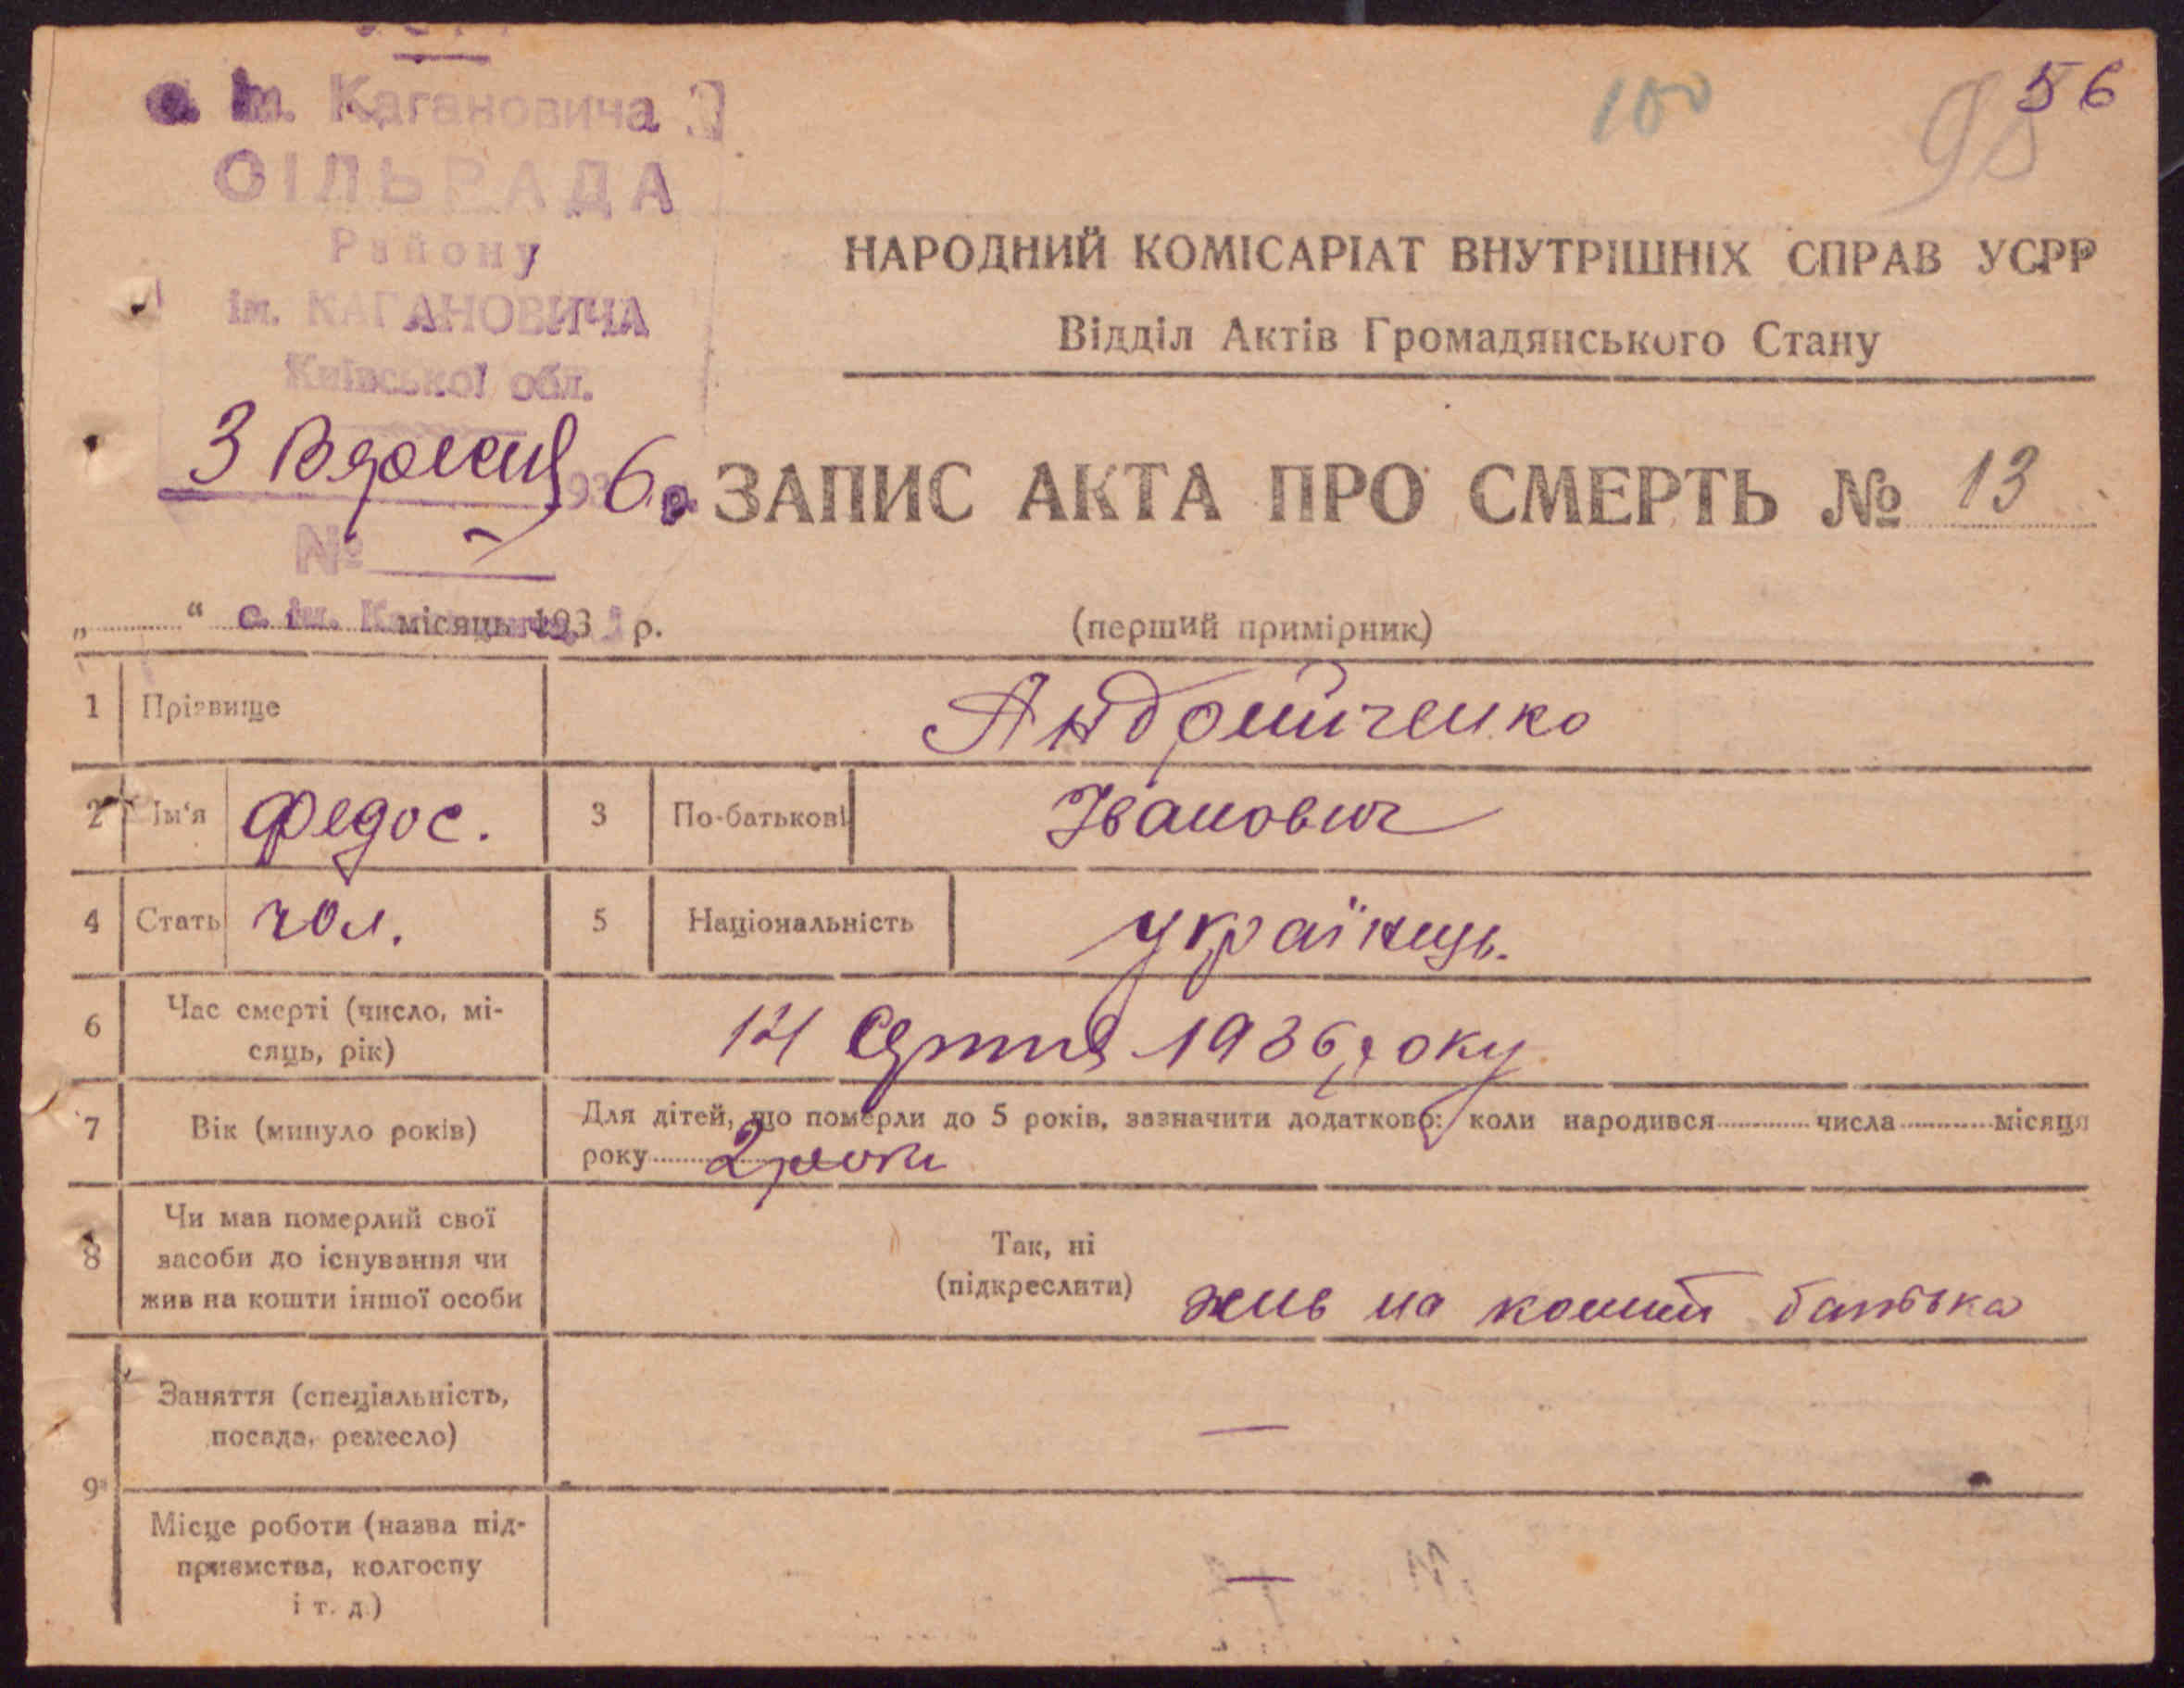 УСРР
с. ім. Кагановича 1
СІЛЬРАДА
Району
ім. КАГАНОВИЧА
Київської обл.
3 Вересня 1936 р.
№
100
98
56
НАРОДНИЙ КОМІСАРІАТ ВНУТРІШНІХ СПРАВ УСРР
Відділ Актів Громадянського Стану
ЗАПИС АКТА ПРО СМЕРТЬ № 13
„ “ с. ім. місяць 193 р.
(перший примірник)
1 Прізвище Андрийченко
2 Ім‘я Федос. 3 По-батькові Іванович
4 Стать чол. 5 Національність українець.
6 Час смерті (число, мі-
сяць, рік) 14 Серпня 1936 року
7 Вік (минуло років) Для дітей, що померли до 5 років, зазначити додатково: коли народився числа місяця
року 2 роки
8 Чи мав померлий свої
засоби до існування чи
жив на кошти іншої особи
Так, ні
(підкреслити) жив на кошти батька
9 Заняття (спеціальність,
посада, ремесло) —
Місце роботи (назва під-
приємства, колгоспу
і т. д.) —